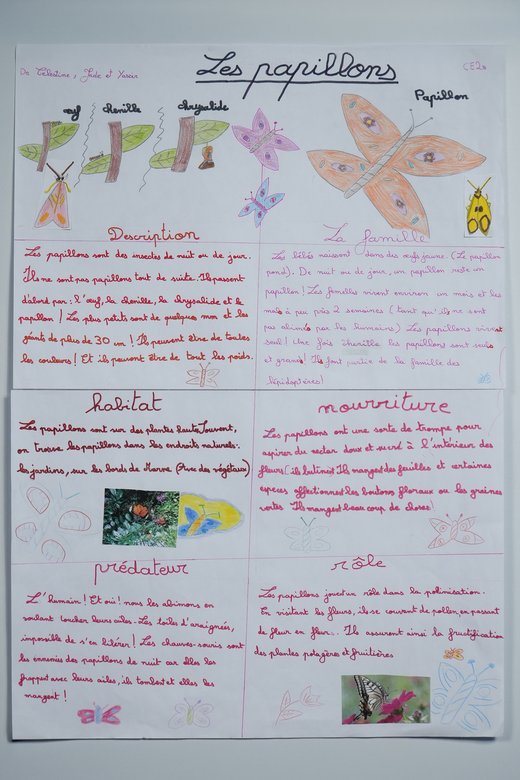 De Célestine, Jade et Yassir
Les papillons
CE2a
œuf
chenille
chrysalide
Papillon
Description
Les papillons sont des insectes de nuit ou de jour.
Ils ne sont pas papillons tout de suite. Ils passent
d'abord par : l'œuf, la chenille, la chrysalide et le
papillon ! Les plus petits sont de quelques mm et les
géants de plus de 30 cm ! Ils peuvent être de toutes
les couleurs ! Et ils peuvent être de tout les poids.
La famille
Les bébés naissent dans des œufs jaune. (Le papillon
pond). De nuit ou de jour, un papillon reste un
papillon ! Les femelles vivent environ un mois et les
mals à peu près 2 semaines (tant qu'ils ne sont
pas abimés par les humains) Les papillons vivent
seul ! Une fois chenille les papillons sont seuls
et grands ! Ils font partie de la famille des
lépidoptères)
habitat
Les papillons sont sur des plantes haute. Souvent,
on trouve les papillons dans les endroits naturels :
les jardins, sur les bords de Marne (Avec des végétaux)
nourriture
Les papillons ont une sorte de trompe pour
aspirer du nectar doux et sucré à l'intérieur des
fleurs (ils butinent) Ils mangent des feuilles et certaines
especes affectionnent les boutons floraux ou les graines
vertes. Ils mangent beaucoup de choses !
prédateur
L'humain ! Et oui ! nous les abimons en
voulant toucher leurs ailes. Les toiles d'araignées,
impossible de s'en libérer ! Les chauves-souris sont
les ennemis des papillons de nuit car elles les
frappent avec leurs ailes, ils tombent et elles les
mangent !
rôle
Les papillons jouent un rôle dans la polinisation.
En visitant les fleurs, ils se couvrent de pollen, en passant
de fleur en fleur. Ils assurent ainsi la fructification
des plantes potagères et fruitières